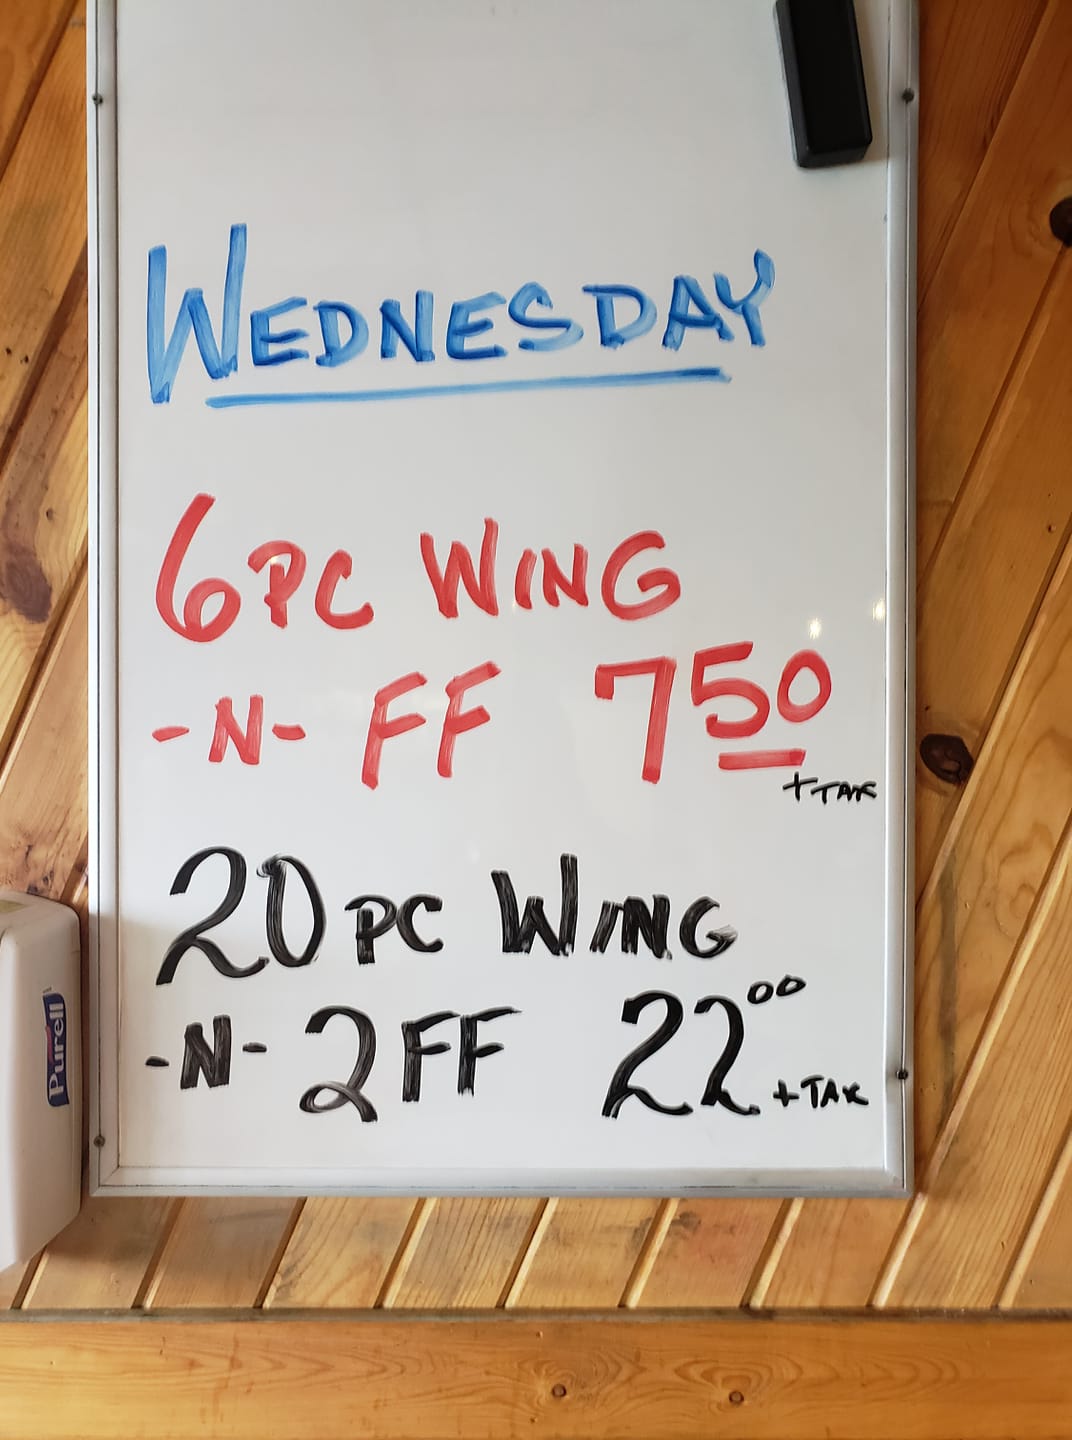 WEDNESDAY
6PC WING
-N- FF 7 50
+ TAX
20 PC WING
-N- 2 FF 22 00 + TAX
Purell